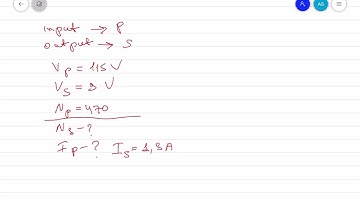 AS
input → p
output → s
Vp = 115 V
Vs = 9 V
Np = 470
Ns - ?
Ip - ? Is = 1,3A